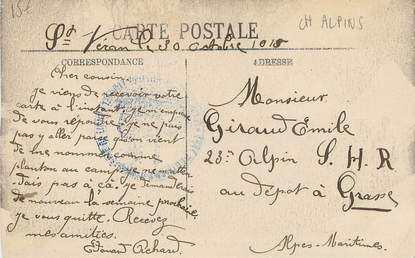 152
CH ALPINS
CARTE POSTALE
St Véran le 30 octobre 1915
CORRESPONDANCE
ADRESSE
Cher cousin.
je viens de recevoir votre
carte à l'instant, je m'empresse
de vous répondre. je ne puis
pas y aller parce qu'on vient
de me nommer comme
planton au camp je ne m'at-
-tendais pas à ça. je demanderai
de nouveau la semaine prochaine
je vous quitte. Recevez
mes amitiés.
Edouard Achard.
Monsieur
Giraud Emile
23e Alpin S. H. R
au dépot à Grasse
Alpes-Maritimes.